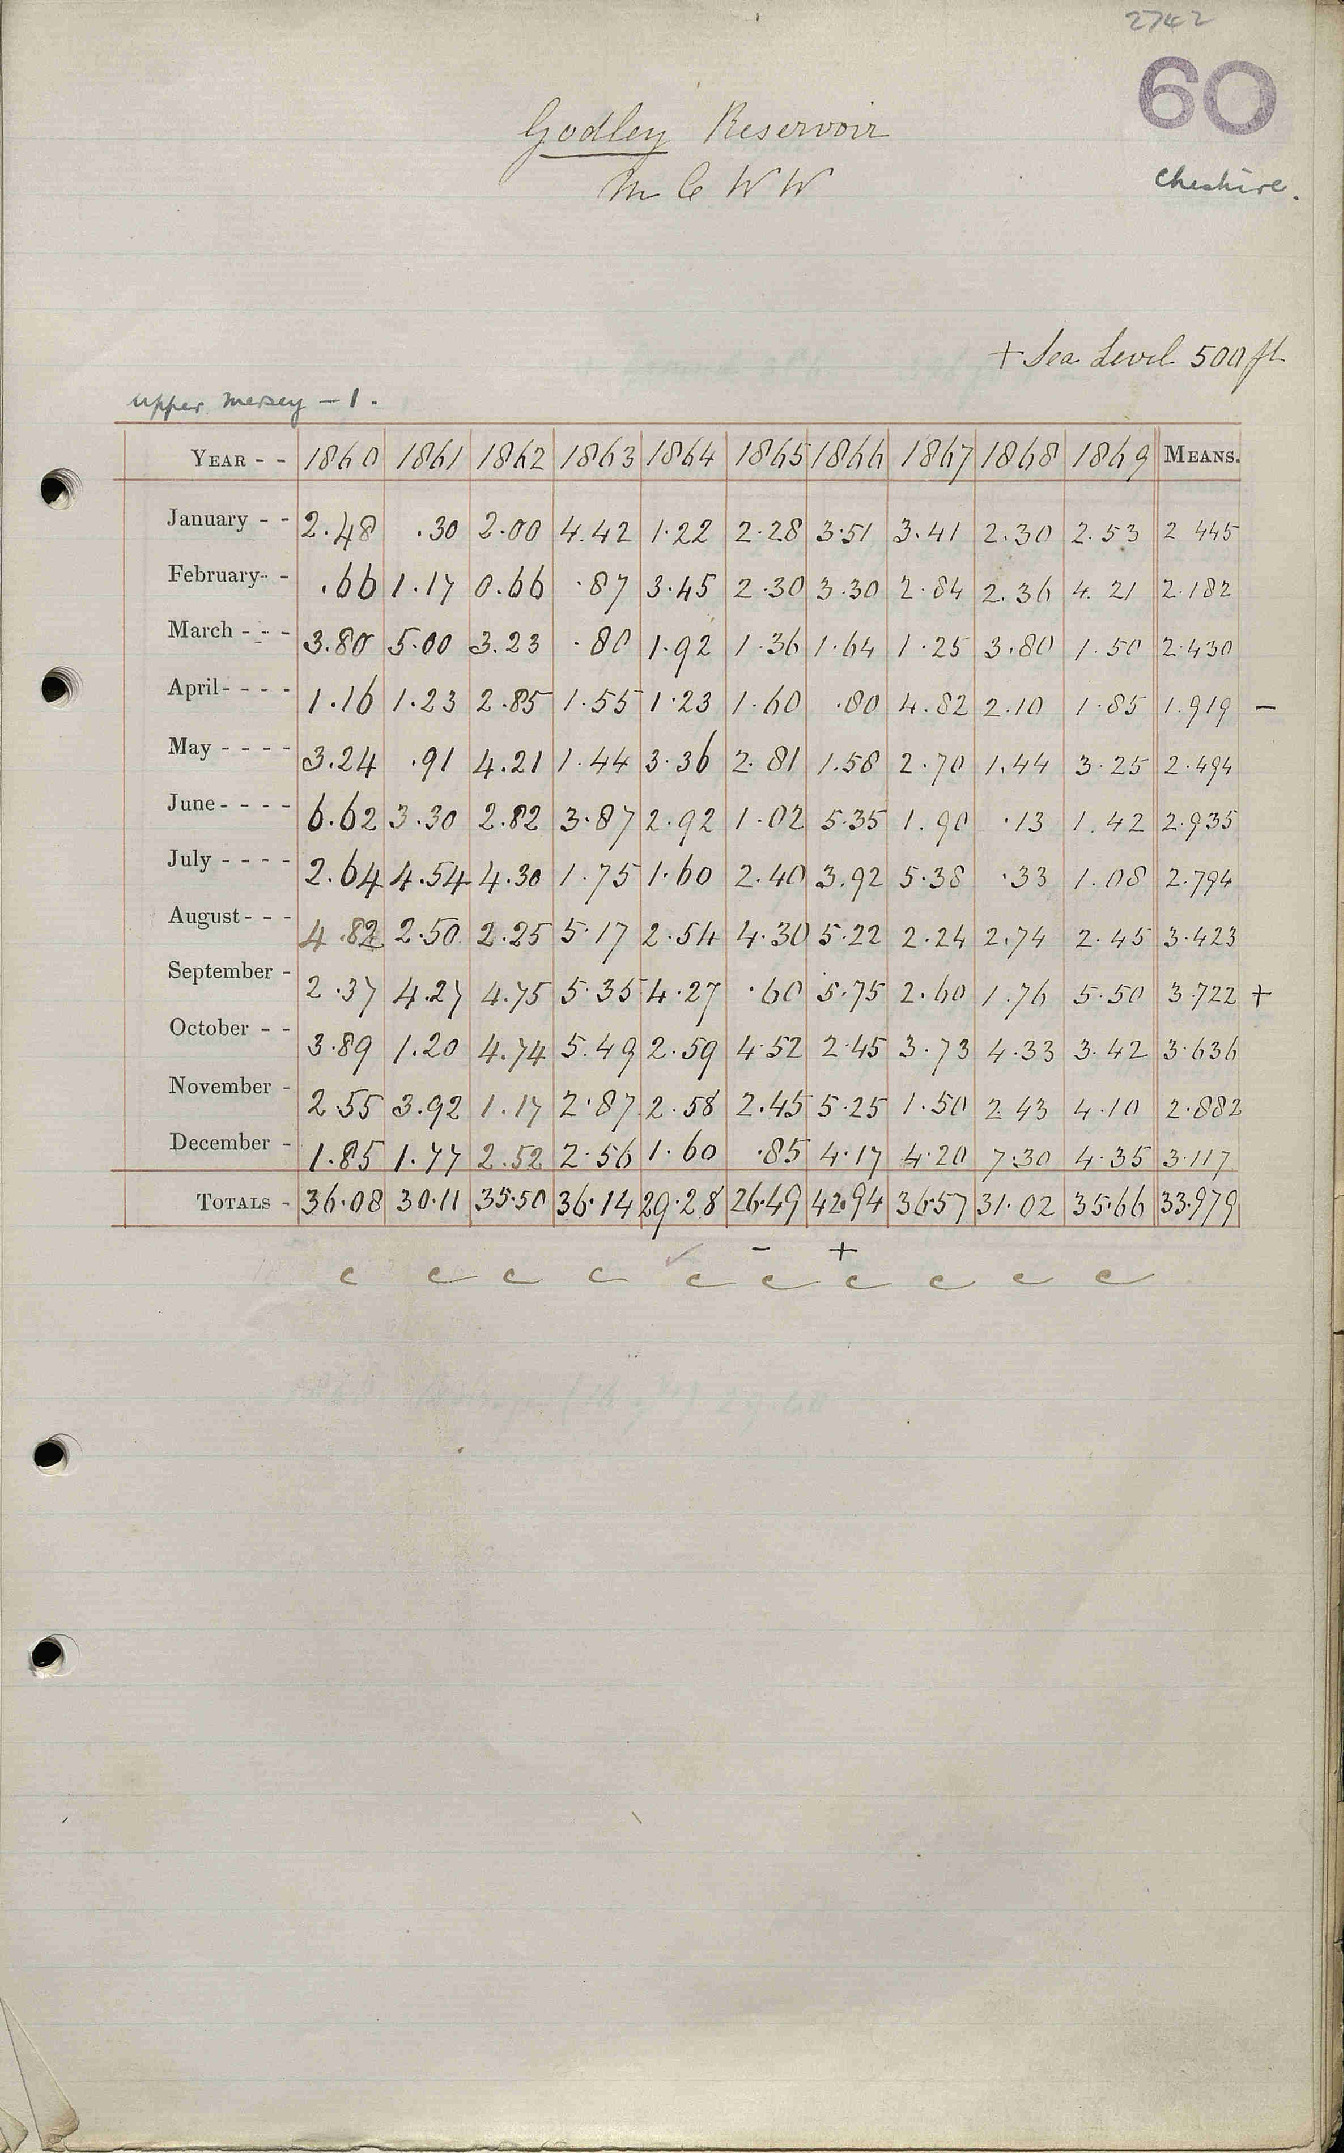 2742
60
Godley Reservoir
M C W W
Cheshire.
+ Sea Level 500 ft
upper mersey - 1.
YEAR - - 1860 1861 1862 1863 1864 1865 1866 1867 1868 1869 MEANS.
January - - 2.48 .30 2.00 4.42 1.22 2.28 3.51 3.41 2.30 2.53 2 445
February - - .66 1.17 0.66 .87 3.45 2.30 3.30 2.84 2.36 4.21 2.182
March - - - 3.80 5.00 3.23 .80 1.92 1.36 1.64 1.25 3.80 1.50 2.430
April - - - - 1.16 1.23 2.85 1.55 1.23 1.60 .80 4.82 2.10 1.85 1.919 -
May - - - - 3.24 .91 4.21 1.44 3.36 2.81 1.58 2.70 1.44 3.25 2.494
June - - - - 6.62 3.30 2.82 3.87 2.92 1.02 5.35 1.90 .13 1.42 2.935
July - - - - 2.64 4.54 4.30 1.75 1.60 2.40 3.92 5.38 .33 1.08 2.794
August - - - 4.82 2.50 2.25 5.17 2.54 4.30 5.22 2.24 2.74 2.45 3.423
September - 2.37 4.27 4.75 5.35 4.27 .60 5.75 2.60 1.76 5.50 3.722 +
October - - 3.89 1.20 4.74 5.49 2.59 4.52 2.45 3.73 4.33 3.42 3.636
November - 2.55 3.92 1.17 2.87 2.58 2.45 5.25 1.50 2.43 4.10 2.882
December - 1.85 1.77 2.52 2.56 1.60 .85 4.17 4.20 7.30 4.35 3.117
TOTALS - 36.08 30.11 35.50 36.14 29.28 26.49 42.94 36.57 31.02 35.66 33.979
- +
c c c c c c c c c c